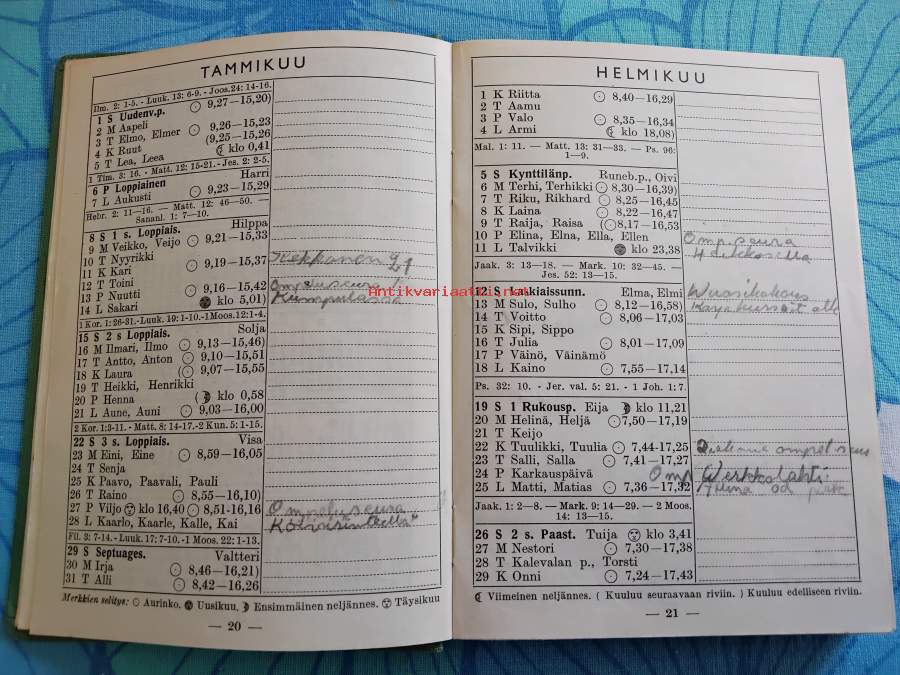 TAMMIKUU
Ilm. 2: 1-5. - Luuk. 13: 6-9. - Joos. 24: 14-16.
1 S Uudenv.p. 9,27—15,20)
2 M Aapeli
3 T Elmo, Elmer 9,26—15,23
4 K Ruut (9,25—15,26
5 T Lea, Leea klo 0,41
1 Tim. 3: 16. - Matt. 12: 15-21. - Jes. 2: 2-5.
6 P Loppiainen Harri
7 L Aukusti 9,23—15,29
Hebr. 2: 11—16. — Matt. 12: 46—50. —
Sananl. 1: 7—10.
8 S 1 s. Loppiais. Hilppa
9 M Veikko, Veijo 9,21—15,33
10 T Nyyrikki
11 K Kari 9,19—15,37
12 T Toini
13 P Nuutti 9,16—15,42
14 L Sakari klo 5,01)
1 Kor. 1: 26-31. - Luuk. 19: 1-10. - 1 Moos. 12: 1-4.
15 S 2 s Loppiais. Solja
16 M Ilmari, Ilmo 9,13—15,46)
17 T Antto, Anton 9,10—15,51
18 K Laura (9,07—15,55
19 T Heikki, Henrikki
20 P Henna ( klo 0,58
21 L Aune, Auni 9,03—16,00
2 Kor. 1:3-11. - Matt. 8: 14-17. - 2 Kun. 5: 1-15.
22 S 3 s. Loppiais. Visa
23 M Eini, Eine 8,59—16,05
24 T Senja
25 K Paavo, Paavali, Pauli
26 T Raino 8,55—16,10)
27 P Viljo klo 16,40 8,51-16,16
28 L Kaarlo, Kaarle, Kalle, Kai
Fil. 3: 7-14. - Luuk. 17: 7-10. - 1 Moos. 22: 1-13.
29 S Septuages. Valtteri
30 M Irja 8,46—16,21)
31 T Alli 8,42—16,26
Merkkien selitys: Aurinko. Uusikuu, Ensimmäinen neljännes. Täysikuu
— 20 —
Kekkonen 21
Ompeluseura
Kumpulassa
Ompeluseura
antikvariaatti.net
HELMIKUU
1 K Riitta 8,40—16,29
2 T Aamu
3 P Valo 8,35—16,34
4 L Armi klo 18,08)
Mal. 1: 11. — Matt. 13: 31—33. — Ps. 96:
1—9.
5 S Kynttilänp. Runeb.p., Oivi
6 M Terhi, Terhikki 8,30—16,39)
7 T Riku, Rikhard 8,25—16,45
8 K Laina 8,22—16,47
9 T Raija, Raisa (8,17—16,53
10 P Elina, Elna, Ella, Ellen
11 L Talvikki klo 23,38
Jaak. 3: 13—18. — Mark. 10: 32—45. —
Jes. 52: 13—15.
12 S Laskiaissunn. Elma, Elmi
13 M Sulo, Sulho 8,12—16,58)
14 T Voitto 8,06—17,03
15 K Sipi, Sippo
16 T Julia 8,01—17,09
17 P Väinö, Väinämö
18 L Kaino 7,55—17,14
Ps. 32: 10. - Jer. val. 5: 21. - 1 Joh. 1: 7.
19 S 1 Rukousp. Eija klo 11,21
20 M Helinä, Heljä 7,50—17,19
21 T Keijo
22 K Tuulikki, Tuulia 7,44-17,25
23 T Salli, Salla 7,41—17,27
24 P Karkauspäivä
25 L Matti, Matias 7,36—17,32
Jaak. 1: 2—8. — Mark. 9: 14—29. — 2 Moos.
14: 13—15.
26 S 2 s. Paast. Tuija klo 3,41
27 M Nestori 7,30—17,38
28 T Kalevalan p., Torsti
29 K Onni 7,24—17,43
Viimeinen neljännes. ( Kuuluu seuraavaan riviin. ) Kuuluu edelliseen riviin.
— 21 —
Omp. seura
Vuosikokous
Omp